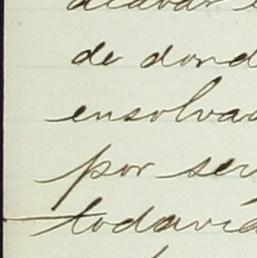 de dond
ensolva
por ser
todavia